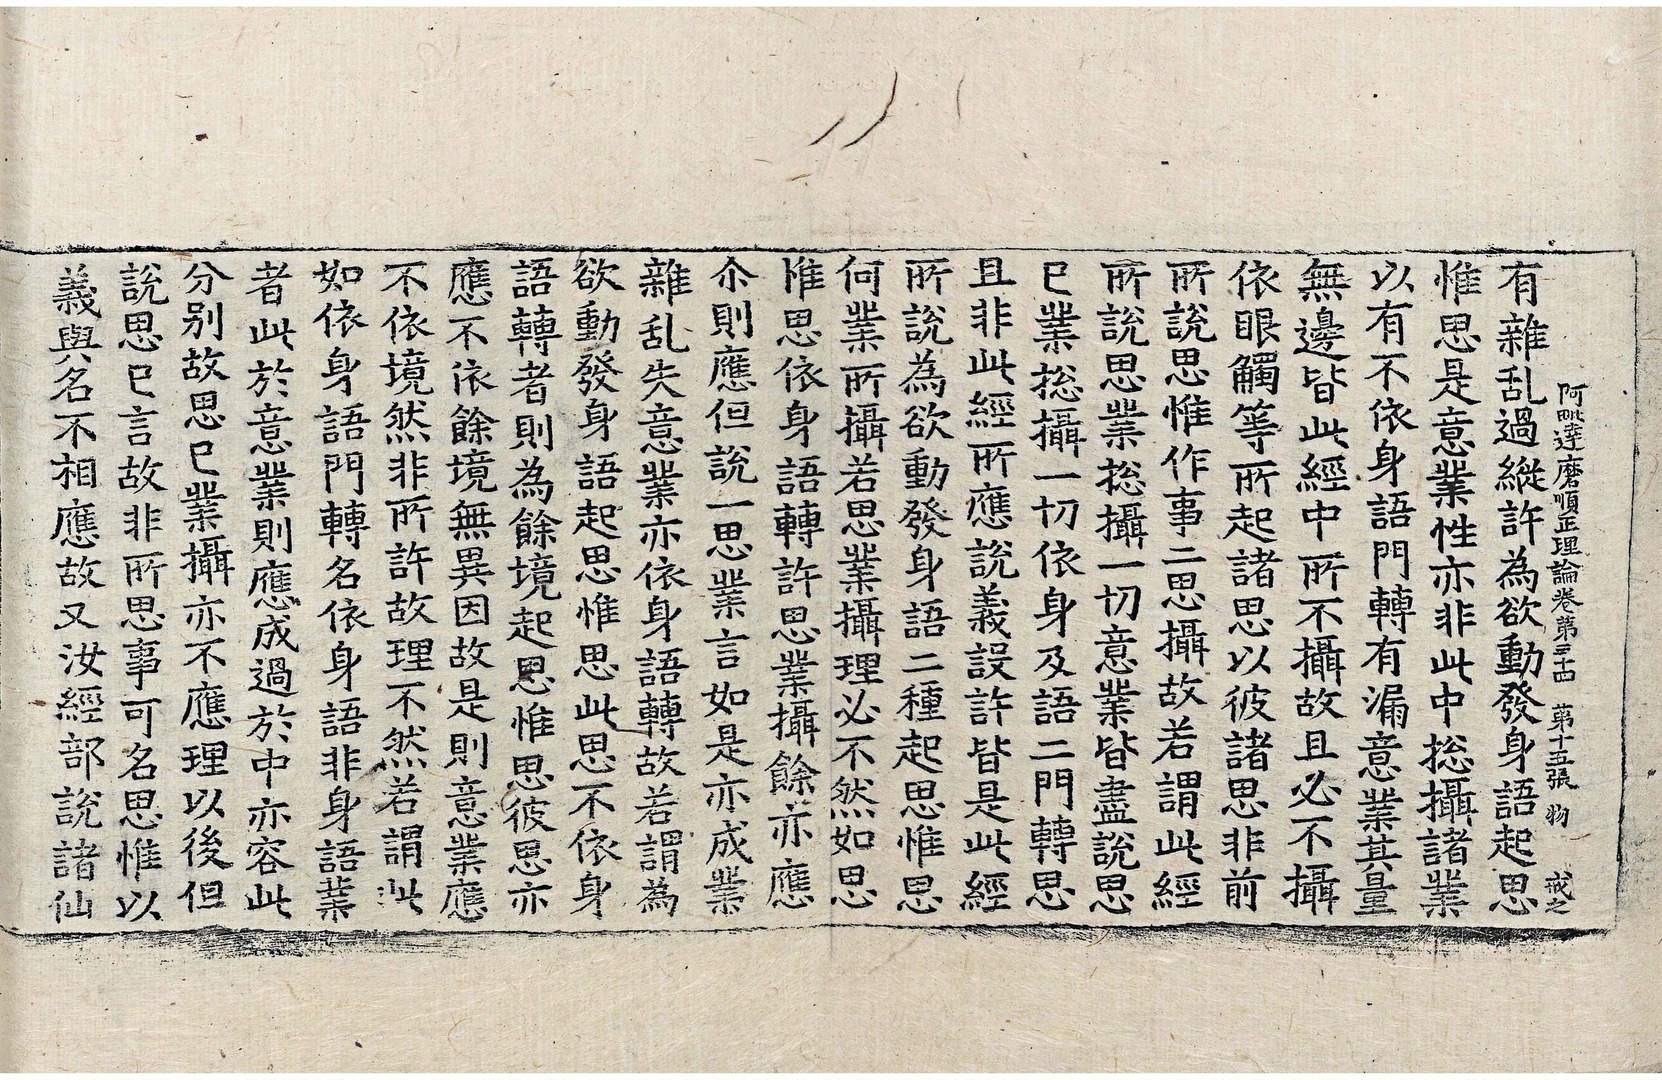 阿毗達磨順正理論卷第三十四　第十五張　物　戒之
有雜乱過縱許為欲動發身語起思
惟思是意業性亦非此中捴攝諸業
以有不依身語門轉有漏意業其量
無邊皆此經中所不攝故且必不攝
依眼觸等所起諸思以彼諸思非前
所說思惟作事二思攝故若謂此經
所說思業捴攝一切意業皆盡說思
已業捴攝一切依身及語二門轉思
且非此經所應說義設許皆是此經
所說為欲動發身語二種起思惟思
何業所攝若思業攝理必不然如思
惟思依身語轉許思業攝餘亦應
尒則應但說一思業言如是亦成業
雜乱失意業亦依身語轉故若謂為
欲動發身語起思惟思此思不依身
語轉者則為餘境起思惟思彼思亦
應不依餘境無異因故是則意業應
不依境然非所許故理不然若謂此
如依身語門轉名依身語非身語業
者此於意業則應成過於中亦容此
分別故思已業攝亦不應理以後但
說思已言故非所思事可名思惟以
義與名不相應故又汝經部說諸仙